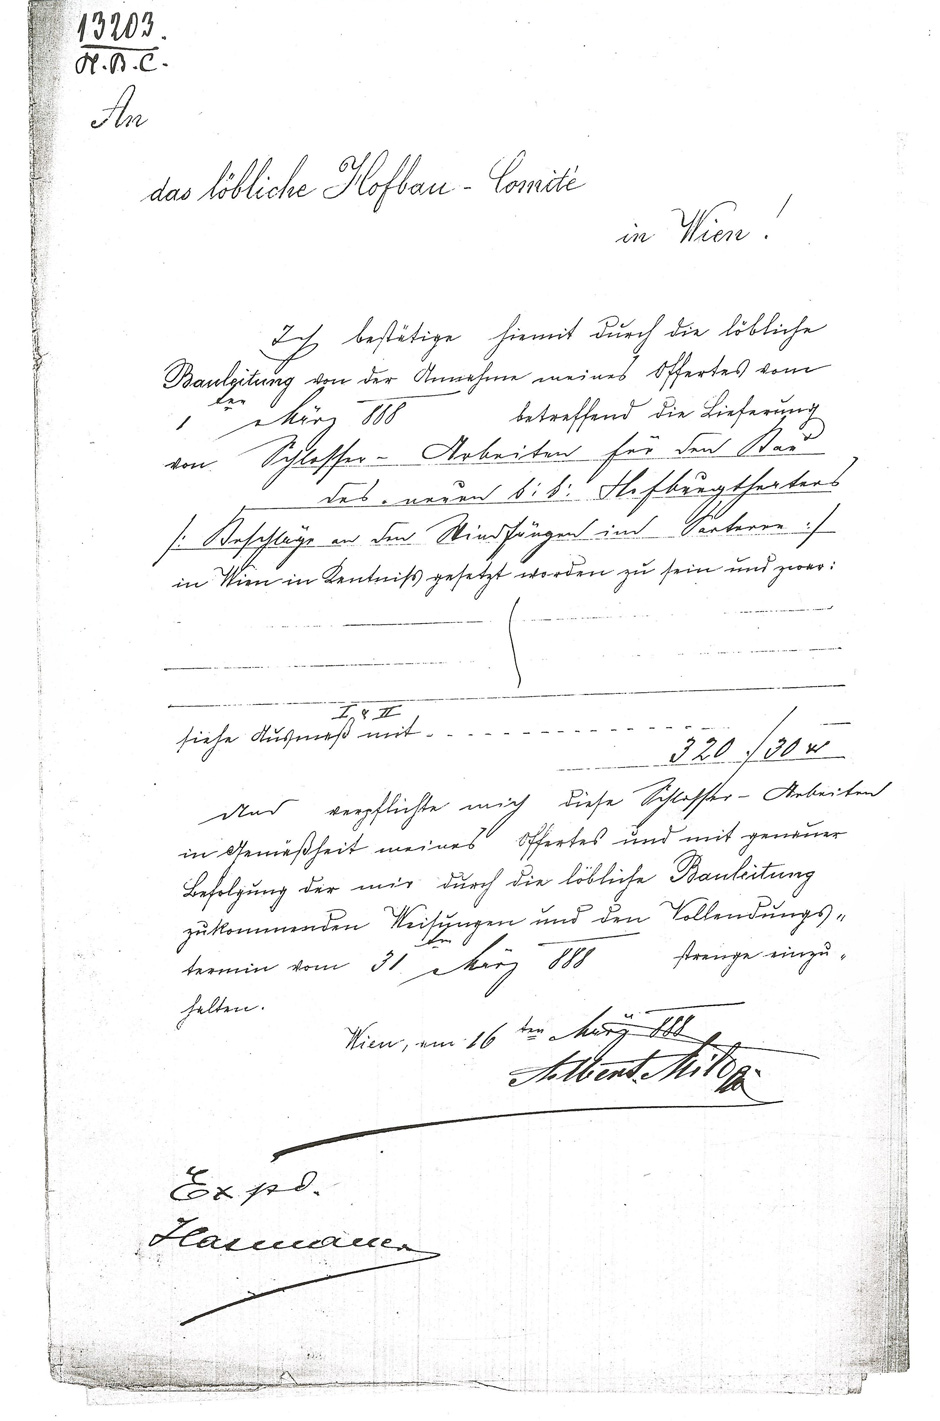 13203.
H.B.C.
An
das löbliche Hofbau-Comité
in Wien!
Ich bestätige hiemit durch die löbliche
Bauleitung von der Annahme meines Offertes vom
1ten März 888 betreffend die Lieferung
von Schlosser-Arbeiten für den Bau
des neuen k: k: Hofburgtheaters
/: Beschläge an den Windfängen im Parterre :/
in Wien in Kentniß gesetzt worden zu sein und zwar:
I & II
siehe Ausmaß mit
320 / 30 kr
Und verpflichte mich diese Schlosser-Arbeiten
in Gemäßheit meines Offertes und mit genauer
Befolgung der mir durch die löbliche Bauleitung
zukommenden Weisungen und den Vollendungs„
termin vom 31ten März 888 strenge einzu„
halten.
Wien, am 16ten März 888
Albert Milde
Expd.